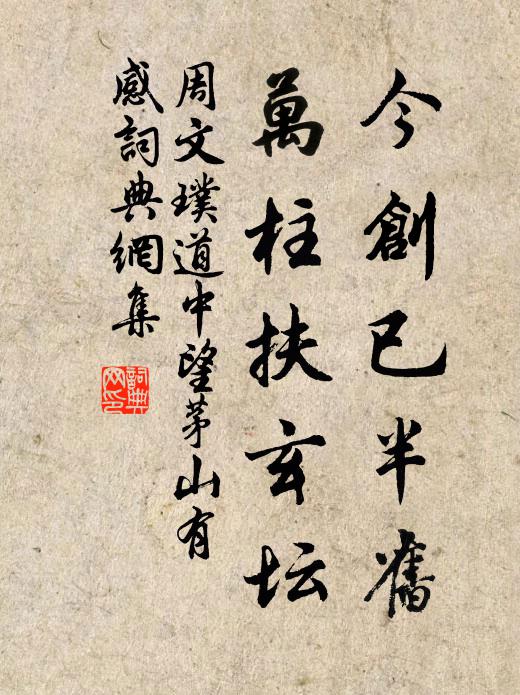 今創已半舊
萬柱扶玄坛
周文璞道中望茅山有
感詞典網集
詞典
网印